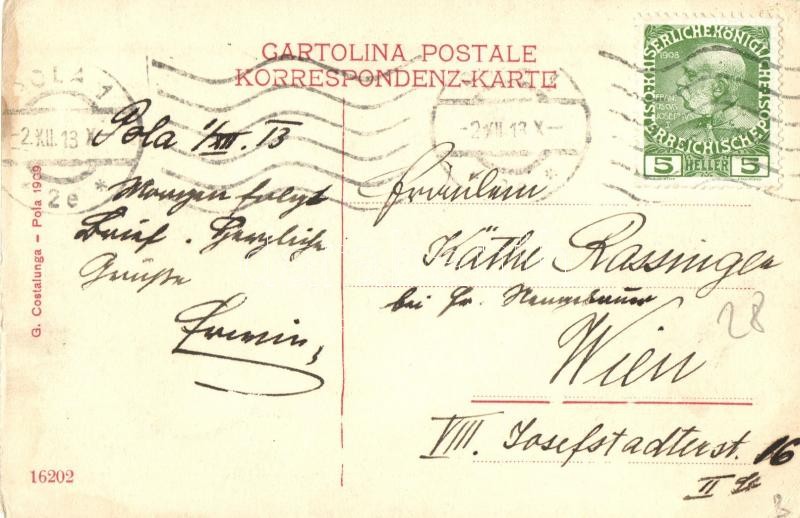 CARTOLINA POSTALE
KORRESPONDENZ-KARTE
POLA 1
-2.XII.13 X
2e *
-2.XII.13 X-
KAISERLICHE KÖNIGLICHE ÖSTERREICHISCHE POST
1908
FRANCISCVS JOSEPHVS I
5 HELLER 5
Pola 1/XII. 13
Morgen folgt
Brief. Herzliche
Grüße
Erwin
Fräulein
Käthe Rassinger
bei Fr. Neugebauer
Wien
VIII. Josefstädterst. 16
II St
28
G. Costalunga – Pola 1909
16202
B